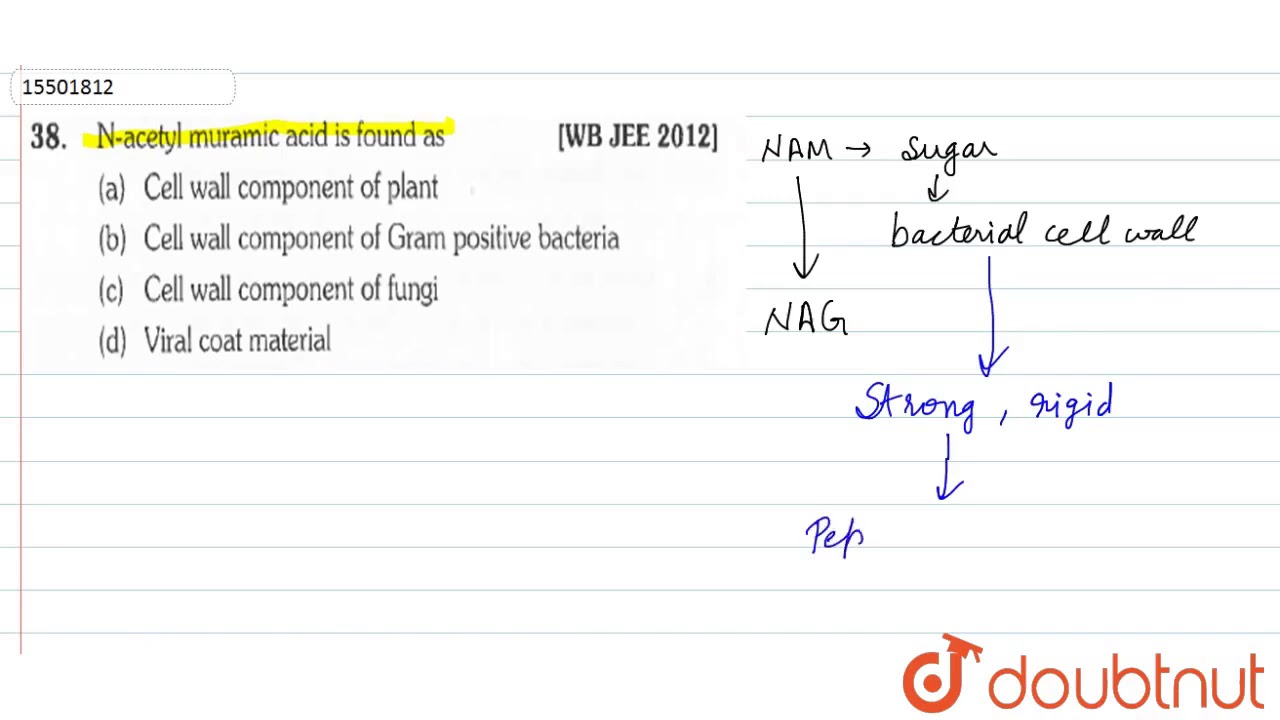 15501812
38. N-acetyl muramic acid is found as [WB JEE 2012]
(a) Cell wall component of plant
(b) Cell wall component of Gram positive bacteria
(c) Cell wall component of fungi
(d) Viral coat material
NAM → Sugar
↓
bacterial cell wall
NAG
Strong, rigid
Pep
doubtnut